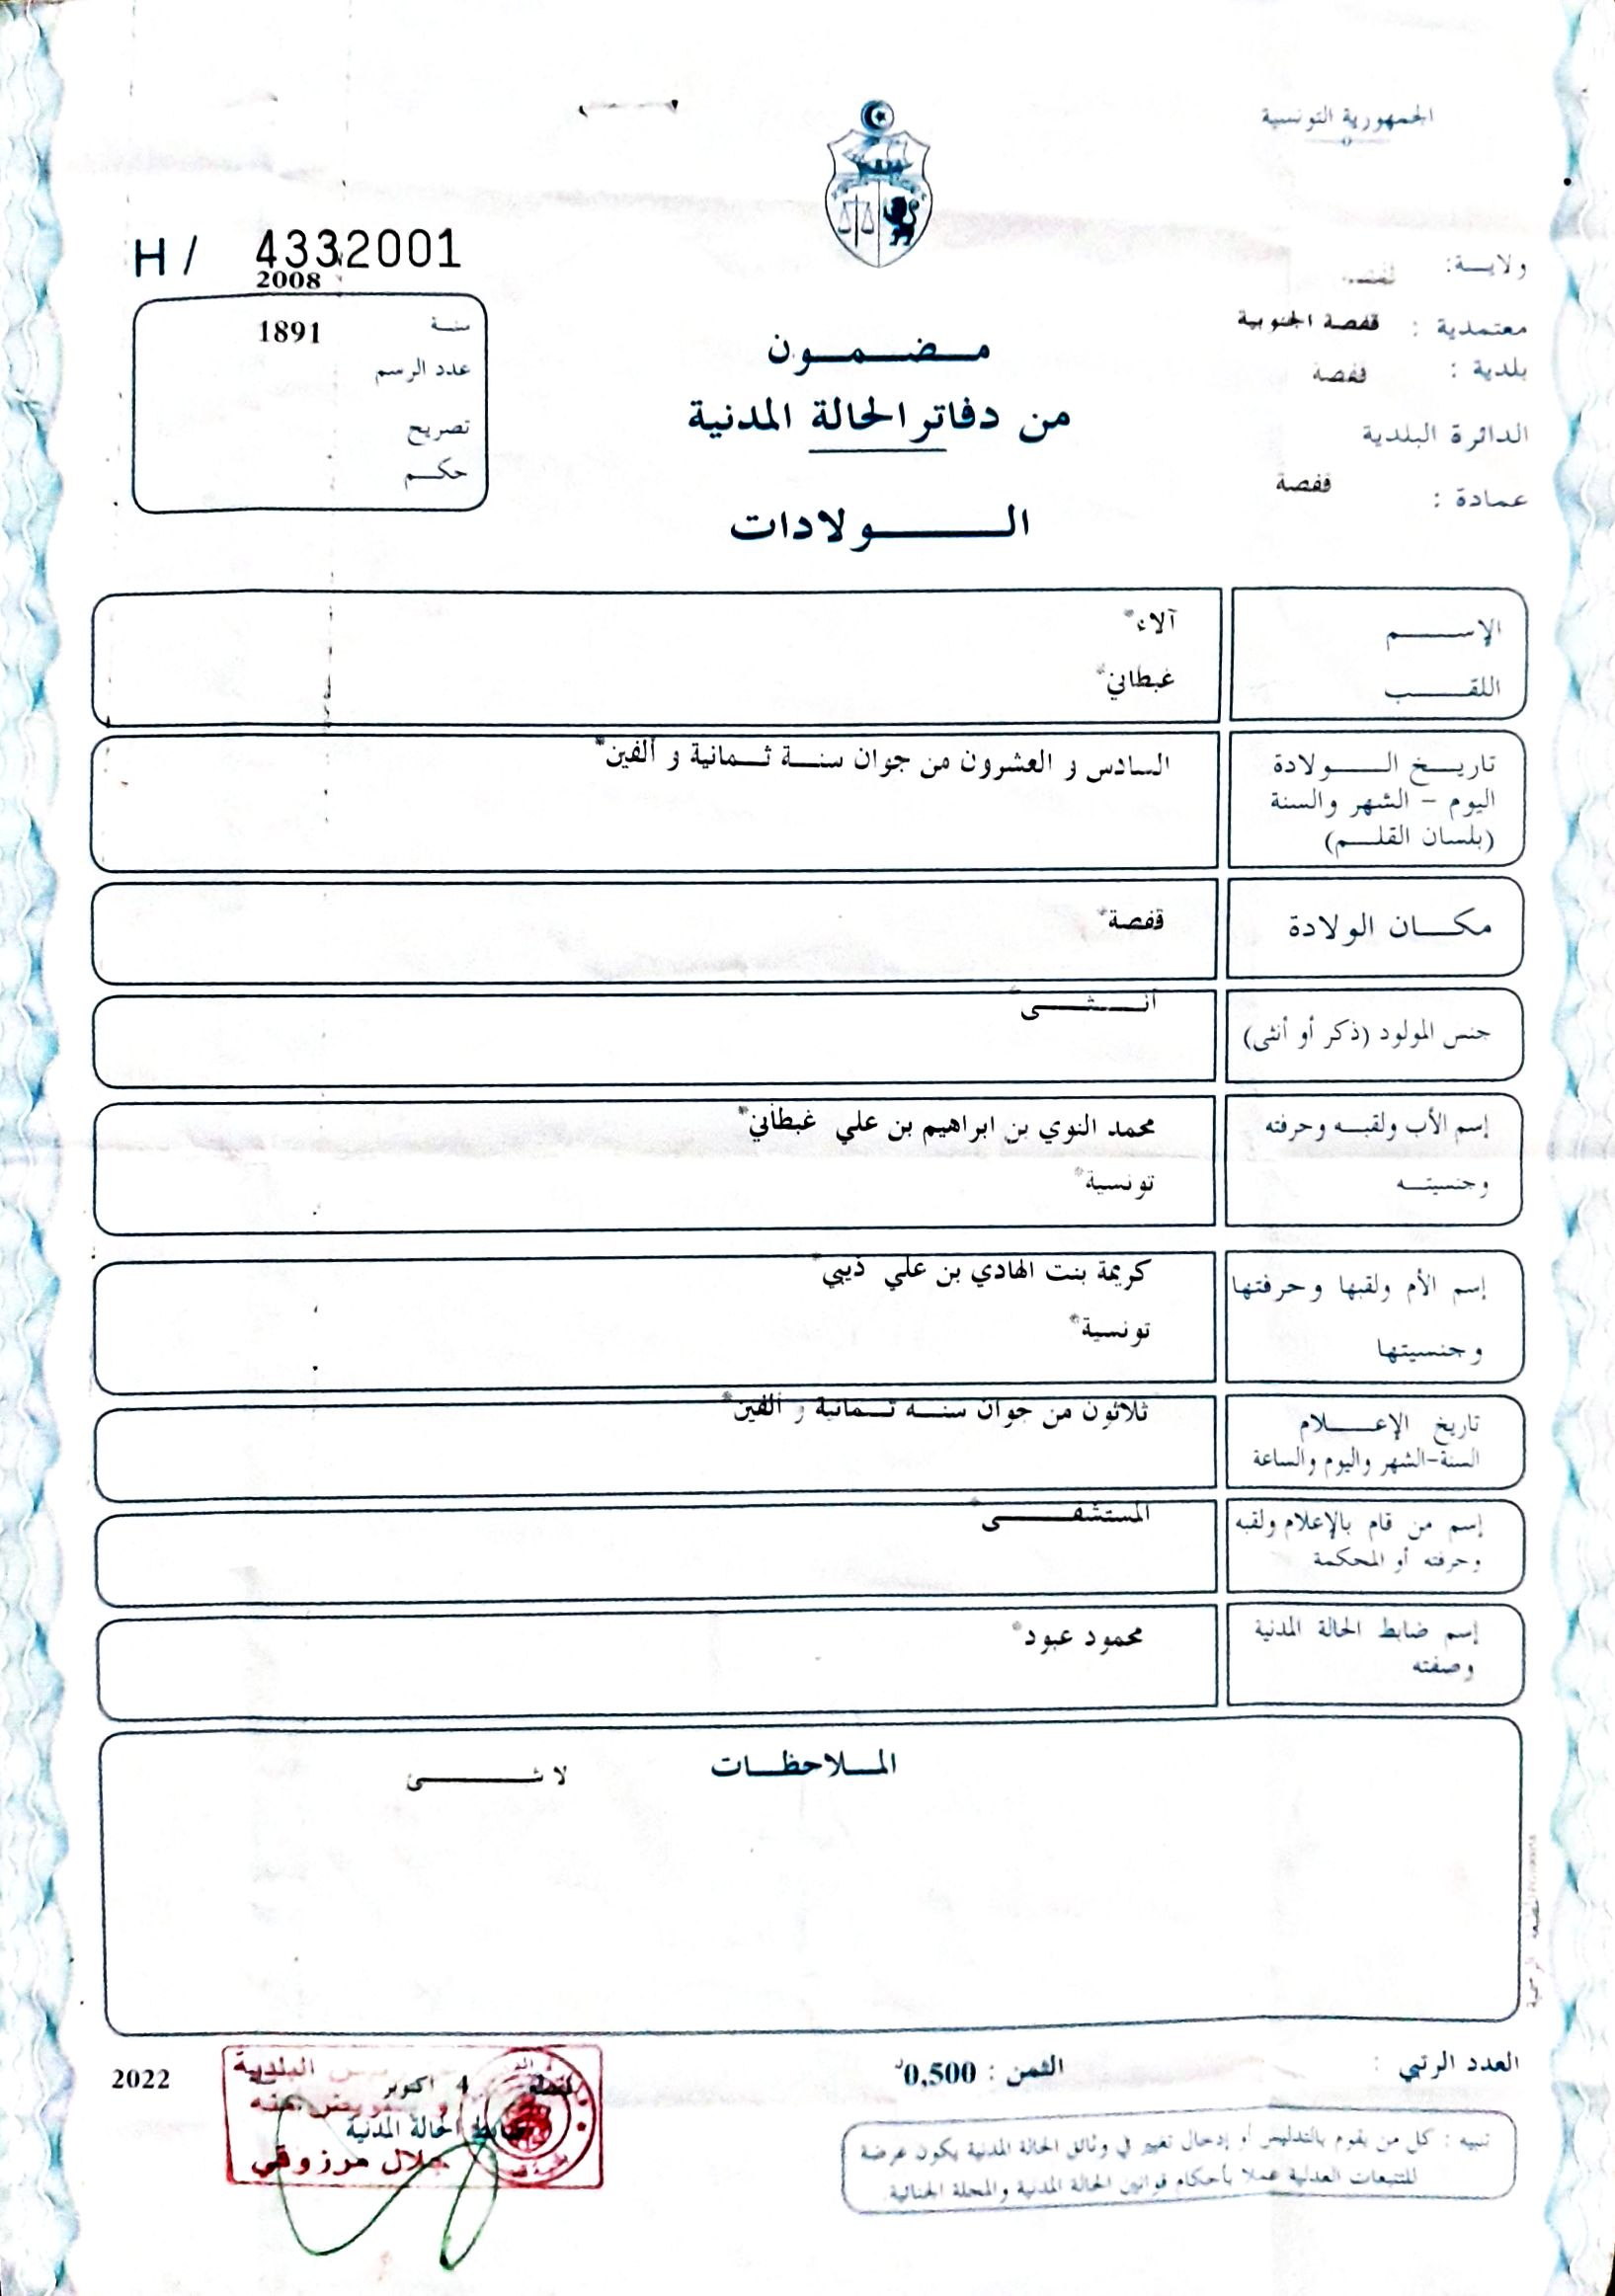 الجمهورية التونسية
H / 4332001
2008
ولايــة:
سنة 1891
معتمدية : قفصة الجنوبية
مـــضـــمـــون
عدد الرسم
بلدية : قفصة
من دفاتر الحالة المدنية
تصريح
الدائرة البلدية
حكــم
عمادة : قفصة
الـــــــولادات
الإســــــم آلاء*
اللقــــــب غبطاني*
تاريــخ الـــــولادة السادس و العشرون من جوان سنــة ثــمانية و ألفين*
اليوم - الشهر والسنة
(بلسان القلــم)
مكـــان الولادة قفصة*
جنس المولود (ذكر أو أنثى) أنـــثـــــى*
إسم الأب ولقبــه وحرفته محمد النوي بن ابراهيم بن علي غبطاني*
وجنسيتــه تونسية*
إسم الأم ولقبها وحرفتها كريمة بنت الهادي بن علي ذيبي*
وجنسيتها تونسية*
تاريخ الإعــــلام ثلاثون من جوان سنــة ثــمانية و ألفين*
السنة-الشهر واليوم والساعة
إسم من قام بالإعلام ولقبه المستشفـــــــى*
وحرفته أو المحكمة
إسم ضابط الحالة المدنية محمود عبود*
وصفته
المــلاحظــات
لا شـــــــئ
العدد الرتبي :
الثمن : 0,500د
البلدية
4 اكتوبر 2022
ضابط الحالة المدنية
جلال مرزوقي
تنبيه : كل من يقوم بالتدليس أو إدخال تغيير في وثائق الحالة المدنية يكون عرضة
للتتبعات العدلية عملا بأحكام قوانين الحالة المدنية والمجلة الجنائية.